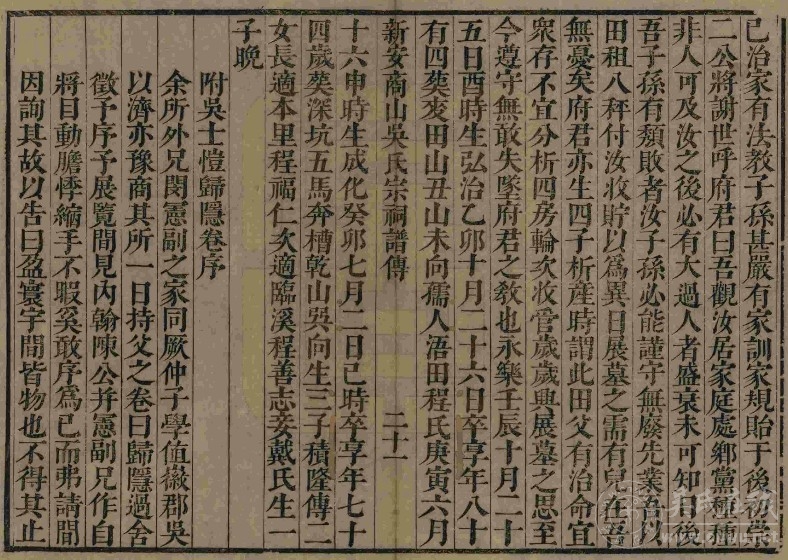 己治家有法教子孫甚嚴有家訓家規貽于後崇
二公將謝世呼府君曰吾觀汝居家庭處鄉黨種種
非人可及汝之後必有大過人者盛衰未可知日後
吾子孫有頹敗者汝子孫必能謹守無廢先業吾以
田租八秤付汝收貯以為異日展墓之需有兒在吾
無憂矣府君亦生四子析產時謂此田父有治命宜
眾存不宜分析四房輪次收管歲歲興展墓之思至
今遵守無敢失墜府君之教也永樂壬辰十月二十
五日酉時生弘治乙卯十月二十六日卒享年八十
有四葬麥田山丑山未向孺人浯田程氏庚寅六月
新安商山吳氏宗祠譜傳 二十一
十六申時生成化癸卯七月二日己時卒享年七十
四歲葬深坑五馬奔槽乾山巽向生三子積隆傳二
女長適本里程福仁次適臨溪程善志妾戴氏生一
子晚
附吳士愷歸隱卷序
余所外兄閔憲副之家同厥仲子學值徽郡吳
以濟亦豫商其所一日持父之卷曰歸隱過舍
徵予序予展覽間見內翰陳公并憲副兄作自
將目動膽悸縮手不暇奚敢序為已而弗請間
因詢其故以告曰盈寰宇間皆物也不得其止
www.ozwu.net